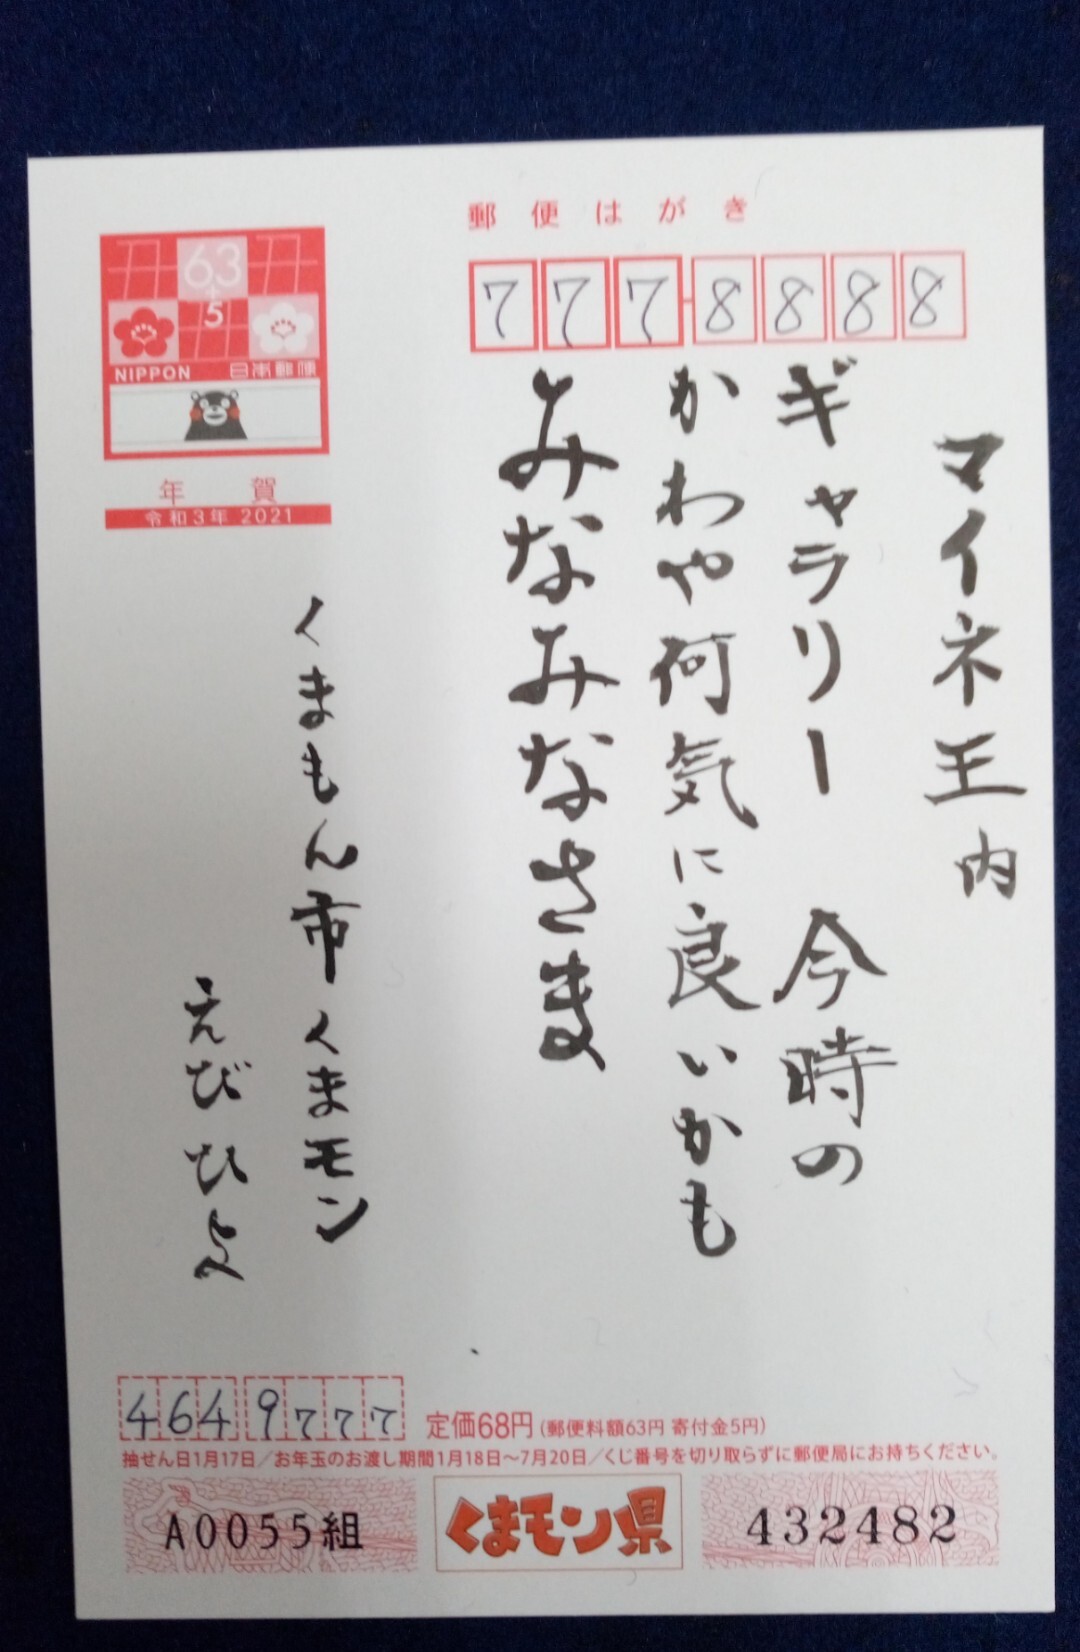 郵便はがき
777-8888
マイネ王内
ギャラリー 今時の
かわや何気に良いかも
みなみなさま
63
+5
NIPPON 日本郵便
年賀
令和3年 2021
くまもん市くまモン
えびひよ
464 9777
定価68円(郵便料額63円 寄付金5円)
抽せん日1月17日/お年玉のお渡し期間1月18日〜7月20日/くじ番号を切り取らずに郵便局にお持ちください。
A0055組
くまモン県
432482